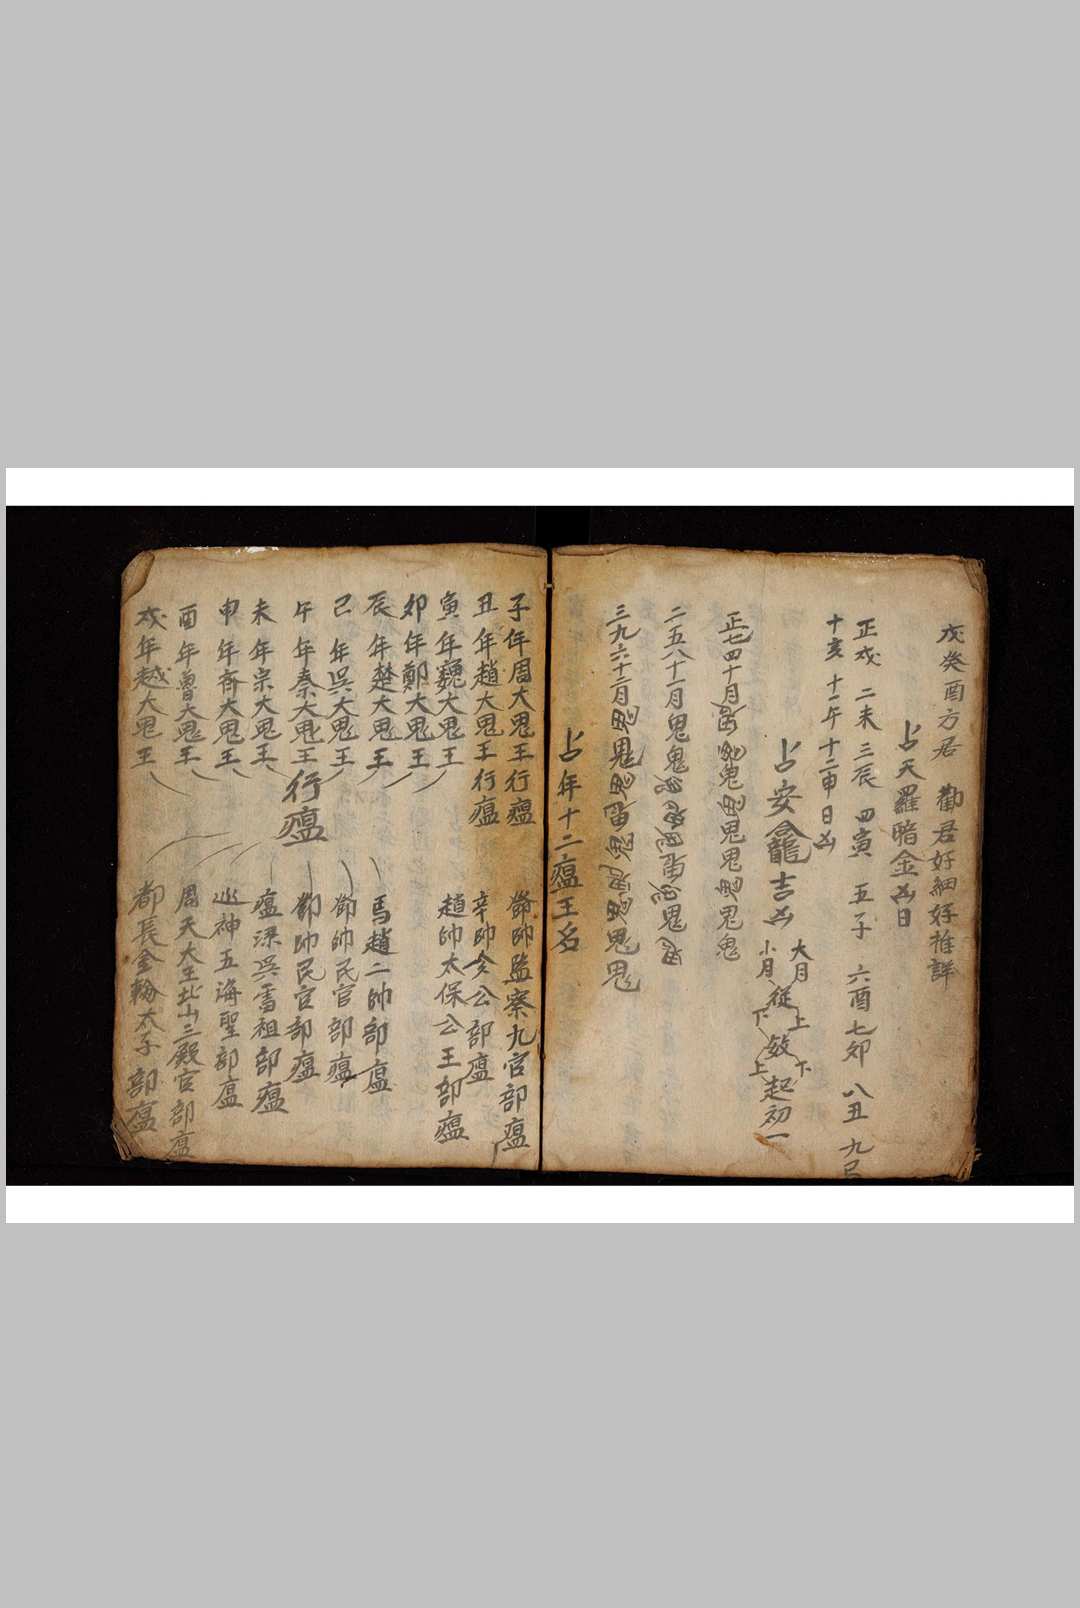 戊癸酉方居 勸君好細好推詳
占天羅暗金凶日
正戌 二未 三辰 四寅 五子 六酉 七卯 八丑 九巳
十亥 十一午 十二申日凶
占安龕吉凶
大月從上 下起初一
小月 下 上
正七四十月
二五八十一月鬼鬼
三九六十二月
占年十二瘟王名
子年周大鬼王行瘟 鄧帥監察九官部瘟
丑年趙大鬼王行瘟 辛帥 公部瘟
寅年魏大鬼王 趙帥太保公王部瘟
卯年鄭大鬼王
辰年楚大鬼王 馬趙二帥部瘟
巳年吳大鬼王 鄧帥民官部瘟
行瘟
午年秦大鬼王 鄧帥民官部瘟
未年宗大鬼王 瘟 吳雷祖部瘟
申年齐大鬼王 巡神五海聖部瘟
酉年魯大鬼王 周天大王北山三殿官部瘟
戌年越大鬼王 都長金輪太子部瘟